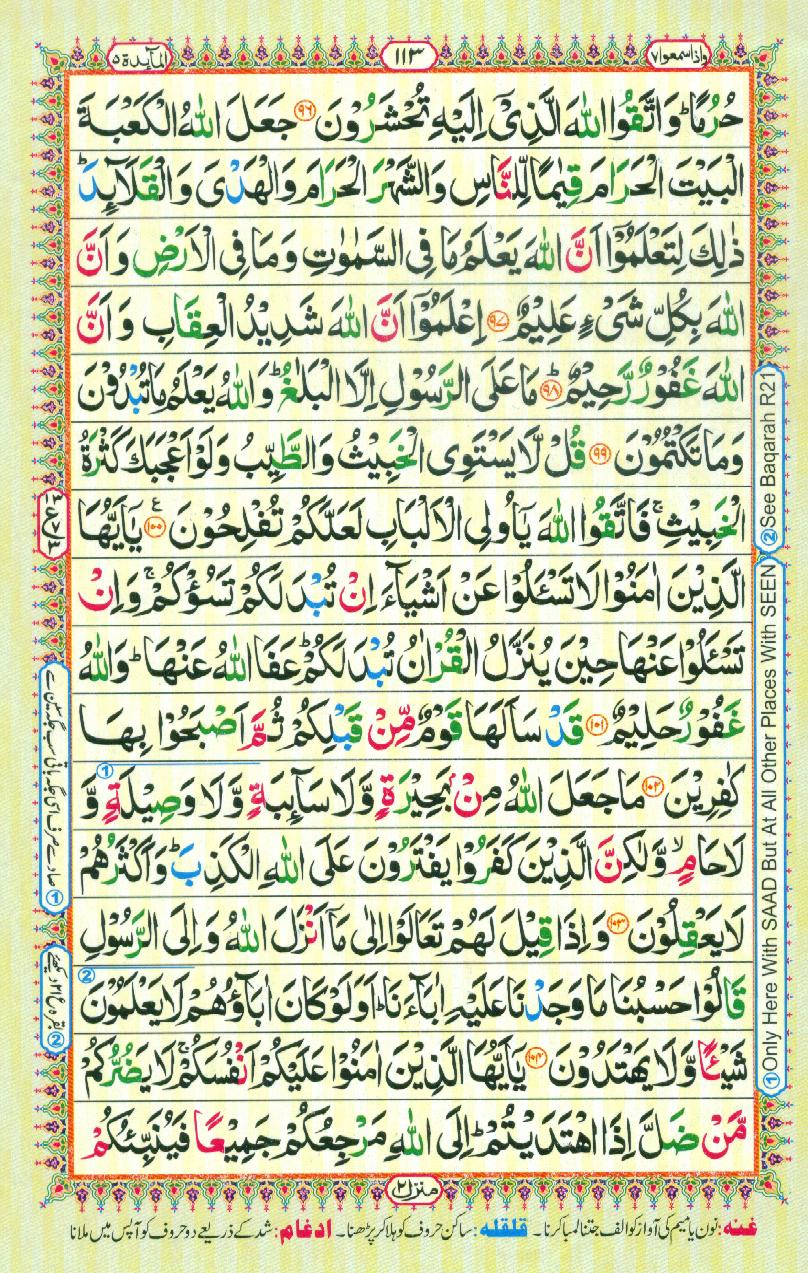 المآيدة ۵
۱۱۳
واذا سمعوا ۷
حُرُمًا ؕ وَاتَّقُوا اللّٰهَ الَّذِیْۤ اِلَیْهِ تُحْشَرُوْنَ ﴿۹۶﴾ جَعَلَ اللّٰهُ الْكَعْبَةَ
الْبَیْتَ الْحَرَامَ قِیٰمًا لِّلنَّاسِ وَالشَّهْرَ الْحَرَامَ وَالْهَدْیَ وَالْقَلَآىِٕدَ ؕ
ذٰلِكَ لِتَعْلَمُوْۤا اَنَّ اللّٰهَ یَعْلَمُ مَا فِی السَّمٰوٰتِ وَمَا فِی الْاَرْضِ وَاَنَّ
اللّٰهَ بِكُلِّ شَیْءٍ عَلِیْمٌ ﴿۹۷﴾ اِعْلَمُوْۤا اَنَّ اللّٰهَ شَدِیْدُ الْعِقَابِ وَاَنَّ
اللّٰهَ غَفُوْرٌ رَّحِیْمٌ ؕ ﴿۹۸﴾ مَا عَلَی الرَّسُوْلِ اِلَّا الْبَلٰغُ ؕ وَاللّٰهُ یَعْلَمُ مَا تُبْدُوْنَ
وَمَا تَكْتُمُوْنَ ﴿۹۹﴾ قُلْ لَّا یَسْتَوِی الْخَبِیْثُ وَالطَّیِّبُ وَلَوْ اَعْجَبَكَ كَثْرَةُ
الْخَبِیْثِ ۚ فَاتَّقُوا اللّٰهَ یٰۤاُولِی الْاَلْبَابِ لَعَلَّكُمْ تُفْلِحُوْنَ ﴿۱۰۰﴾ ع یٰۤاَیُّهَا
الَّذِیْنَ اٰمَنُوْا لَا تَسْـَٔلُوْا عَنْ اَشْیَآءَ اِنْ تُبْدَ لَكُمْ تَسُؤْكُمْ ۚ وَاِنْ
تَسْـَٔلُوْا عَنْهَا حِیْنَ یُنَزَّلُ الْقُرْاٰنُ تُبْدَ لَكُمْ ؕ عَفَا اللّٰهُ عَنْهَا ؕ وَاللّٰهُ
غَفُوْرٌ حَلِیْمٌ ﴿۱۰۱﴾ قَدْ سَاَلَهَا قَوْمٌ مِّنْ قَبْلِكُمْ ثُمَّ اَصْبَحُوْا بِهَا
كٰفِرِیْنَ ﴿۱۰۲﴾ مَا جَعَلَ اللّٰهُ مِنْۢ بَحِیْرَةٍ وَّلَا سَآىِٕبَةٍ وَّلَا وَصِیْلَةٍ وَّ
لَا حَامٍ ۙ وَّلٰكِنَّ الَّذِیْنَ كَفَرُوْا یَفْتَرُوْنَ عَلَی اللّٰهِ الْكَذِبَ ؕ وَاَكْثَرُهُمْ
لَا یَعْقِلُوْنَ ﴿۱۰۳﴾ وَاِذَا قِیْلَ لَهُمْ تَعَالَوْا اِلٰی مَاۤ اَنْزَلَ اللّٰهُ وَاِلَی الرَّسُوْلِ
قَالُوْا حَسْبُنَا مَا وَجَدْنَا عَلَیْهِ اٰبَآءَنَا ؕ اَوَلَوْ كَانَ اٰبَآؤُهُمْ لَا یَعْلَمُوْنَ
شَیْـًٔا وَّلَا یَهْتَدُوْنَ ﴿۱۰۴﴾ یٰۤاَیُّهَا الَّذِیْنَ اٰمَنُوْا عَلَیْكُمْ اَنْفُسَكُمْ ۚ لَا یَضُرُّكُمْ
مَّنْ ضَلَّ اِذَا اهْتَدَیْتُمْ ؕ اِلَی اللّٰهِ مَرْجِعُكُمْ جَمِیْعًا فَیُنَبِّئُكُمْ
② See Baqarah R21
① Only Here With SAAD But At All Other Places With SEEN
① صاد سے صرف اسی جگہ باقی سب جگہ سین سے
② بقرہ ع ۲۱ دیکھئے
①
②
منزل ۲
غنه: نون یا میم کی آواز کو الف جتنا لمبا کرنا۔ قلقله: ساکن حروف کو ہلا کر پڑھنا۔ ادغام: شد کے ذریعے دو حروف کو آپس میں ملانا